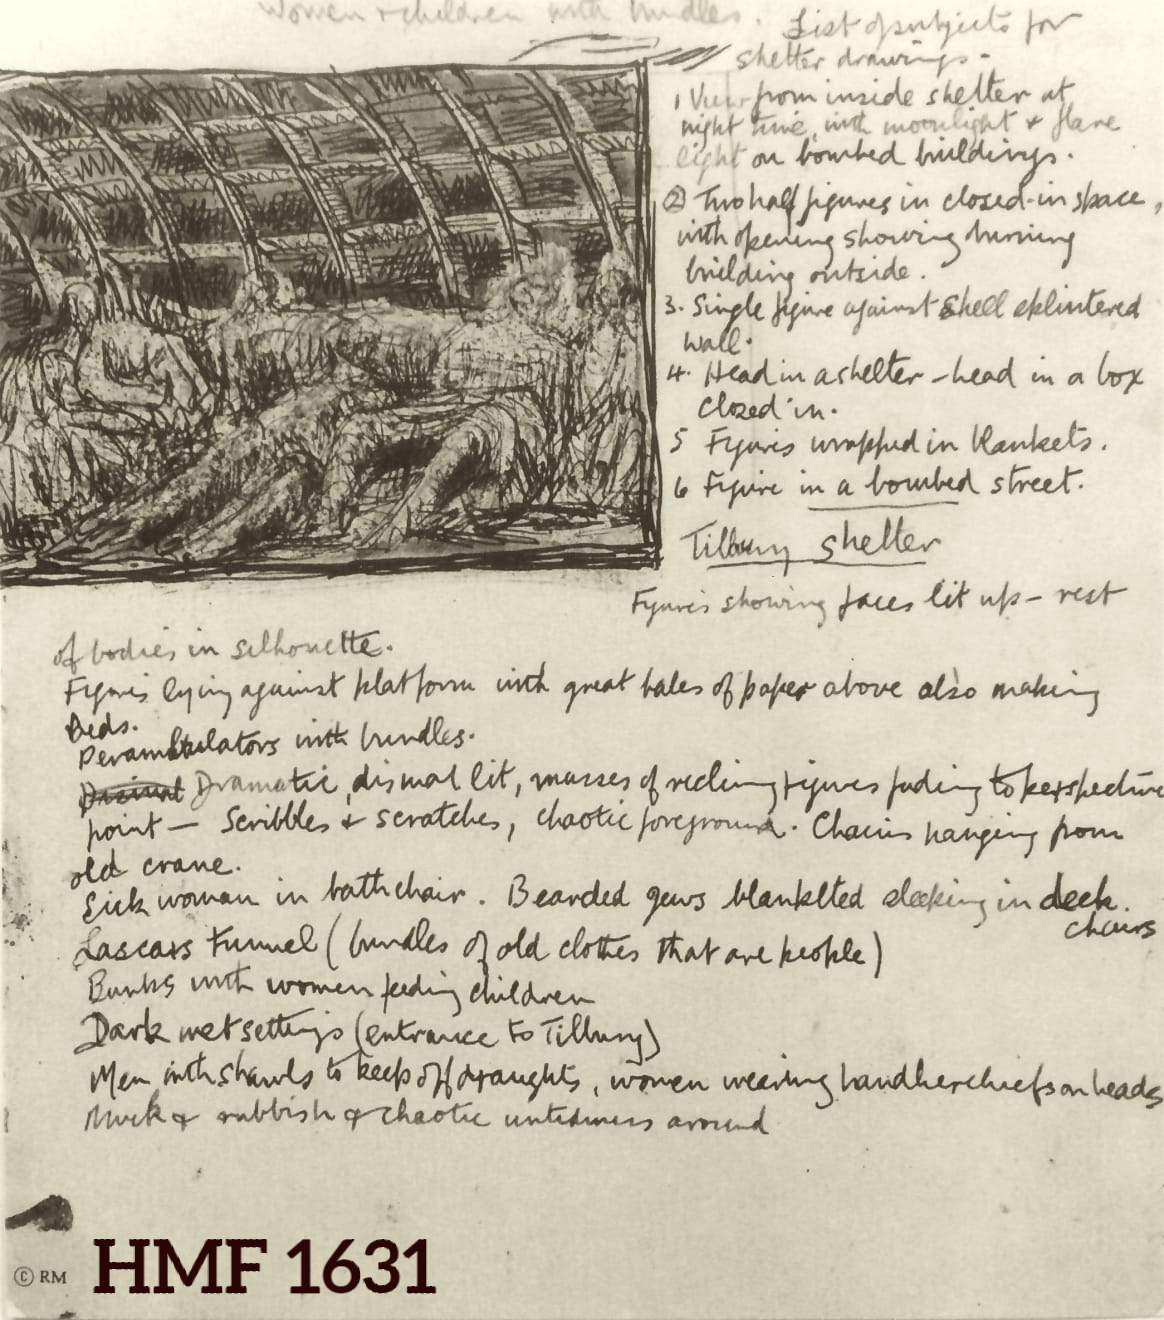 Women & children with bundles.
List of subjects for
shelter drawings -
1 View from inside shelter at
night time, with moonlight & flare
light on bombed buildings.
② Two half figures in closed-in space,
with opening showing burning
building outside.
3. Single figure against shell splintered
wall.
4. Head in a shelter - head in a box
closed in.
5 Figures wrapped in blankets.
6 Figure in a bombed street.
Tilbury shelter
Figures showing faces lit up - rest
of bodies in silhouette.
Figures lying against platform with great bales of paper above also making
beds.
Perambulators with bundles.
Dramatic, dismal lit, masses of reclining figures fading to perspective
point - Scribbles & scratches, chaotic foreground. Chains hanging from
old crane.
Sick woman in bathchair. Bearded jews blanketed sleeping in deck
chairs
Lascars Tunnel (bundles of old clothes that are people)
Bunks with women feeding children
Dark wet settings (entrance to Tilbury)
Men with shawls to keep off draughts, women wearing handkerchiefs on heads
Muck & rubbish & chaotic untidiness around
© RM
HMF 1631